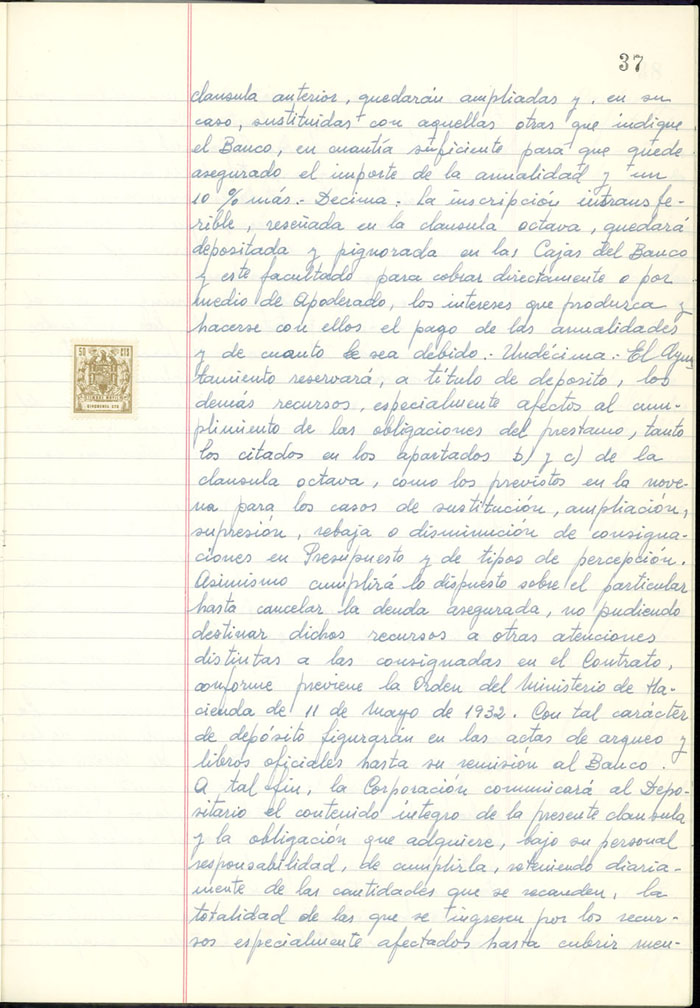 37
clausula anterior, quedarán ampliadas y, en su
caso, sustituidas con aquellas otras que indique
el Banco, en cuantía suficiente para que quede
asegurado el importe de la anualidad y un
10 % más.- Decima.- La inscripción intransfe-
rible, reseñada en la clausula octava, quedará
depositada y pignorada en las Cajas del Banco
y este facultado para cobrar directamente o por
medio de Apoderado, los intereses que produzca y
hacerse con ellos el pago de las anualidades
y de cuanto le sea debido.- Undécima.- El Ayun
tamiento reservará, a título de deposito, los
demás recursos, especialmente afectos al cum-
plimiento de las obligaciones del prestamo, tanto
los citados en los apartados b) y c) de la
clausula octava, como los previstos en la nove-
na para los casos de sustitución, ampliación,
supresión, rebaja o disminución de consigna-
ciones en Presupuesto y de tipos de percepción.
Asimismo cumplirá lo dispuesto sobre el particular
hasta cancelar la deuda asegurada, no pudiendo
destinar dichos recursos a otras atenciones
distintas a las consignadas en el Contrato,
conforme previene la Orden del Ministerio de Ha-
cienda de 11 de Mayo de 1932. Con tal carácter
de depósito figurarán en las actas de arqueo y
libros oficiales hasta su remisión al Banco.
A tal fin, la Corporación comunicará al Depo-
sitario el contenido integro de la presente clausula
y la obligación que adquiere, bajo su personal
responsabilidad, de cumplirla, reteniendo diaria-
mente de las cantidades que se recauden, la
totalidad de las que se ingresen por los recur-
sos especialmente afectados hasta cubrir men-
50 CTS